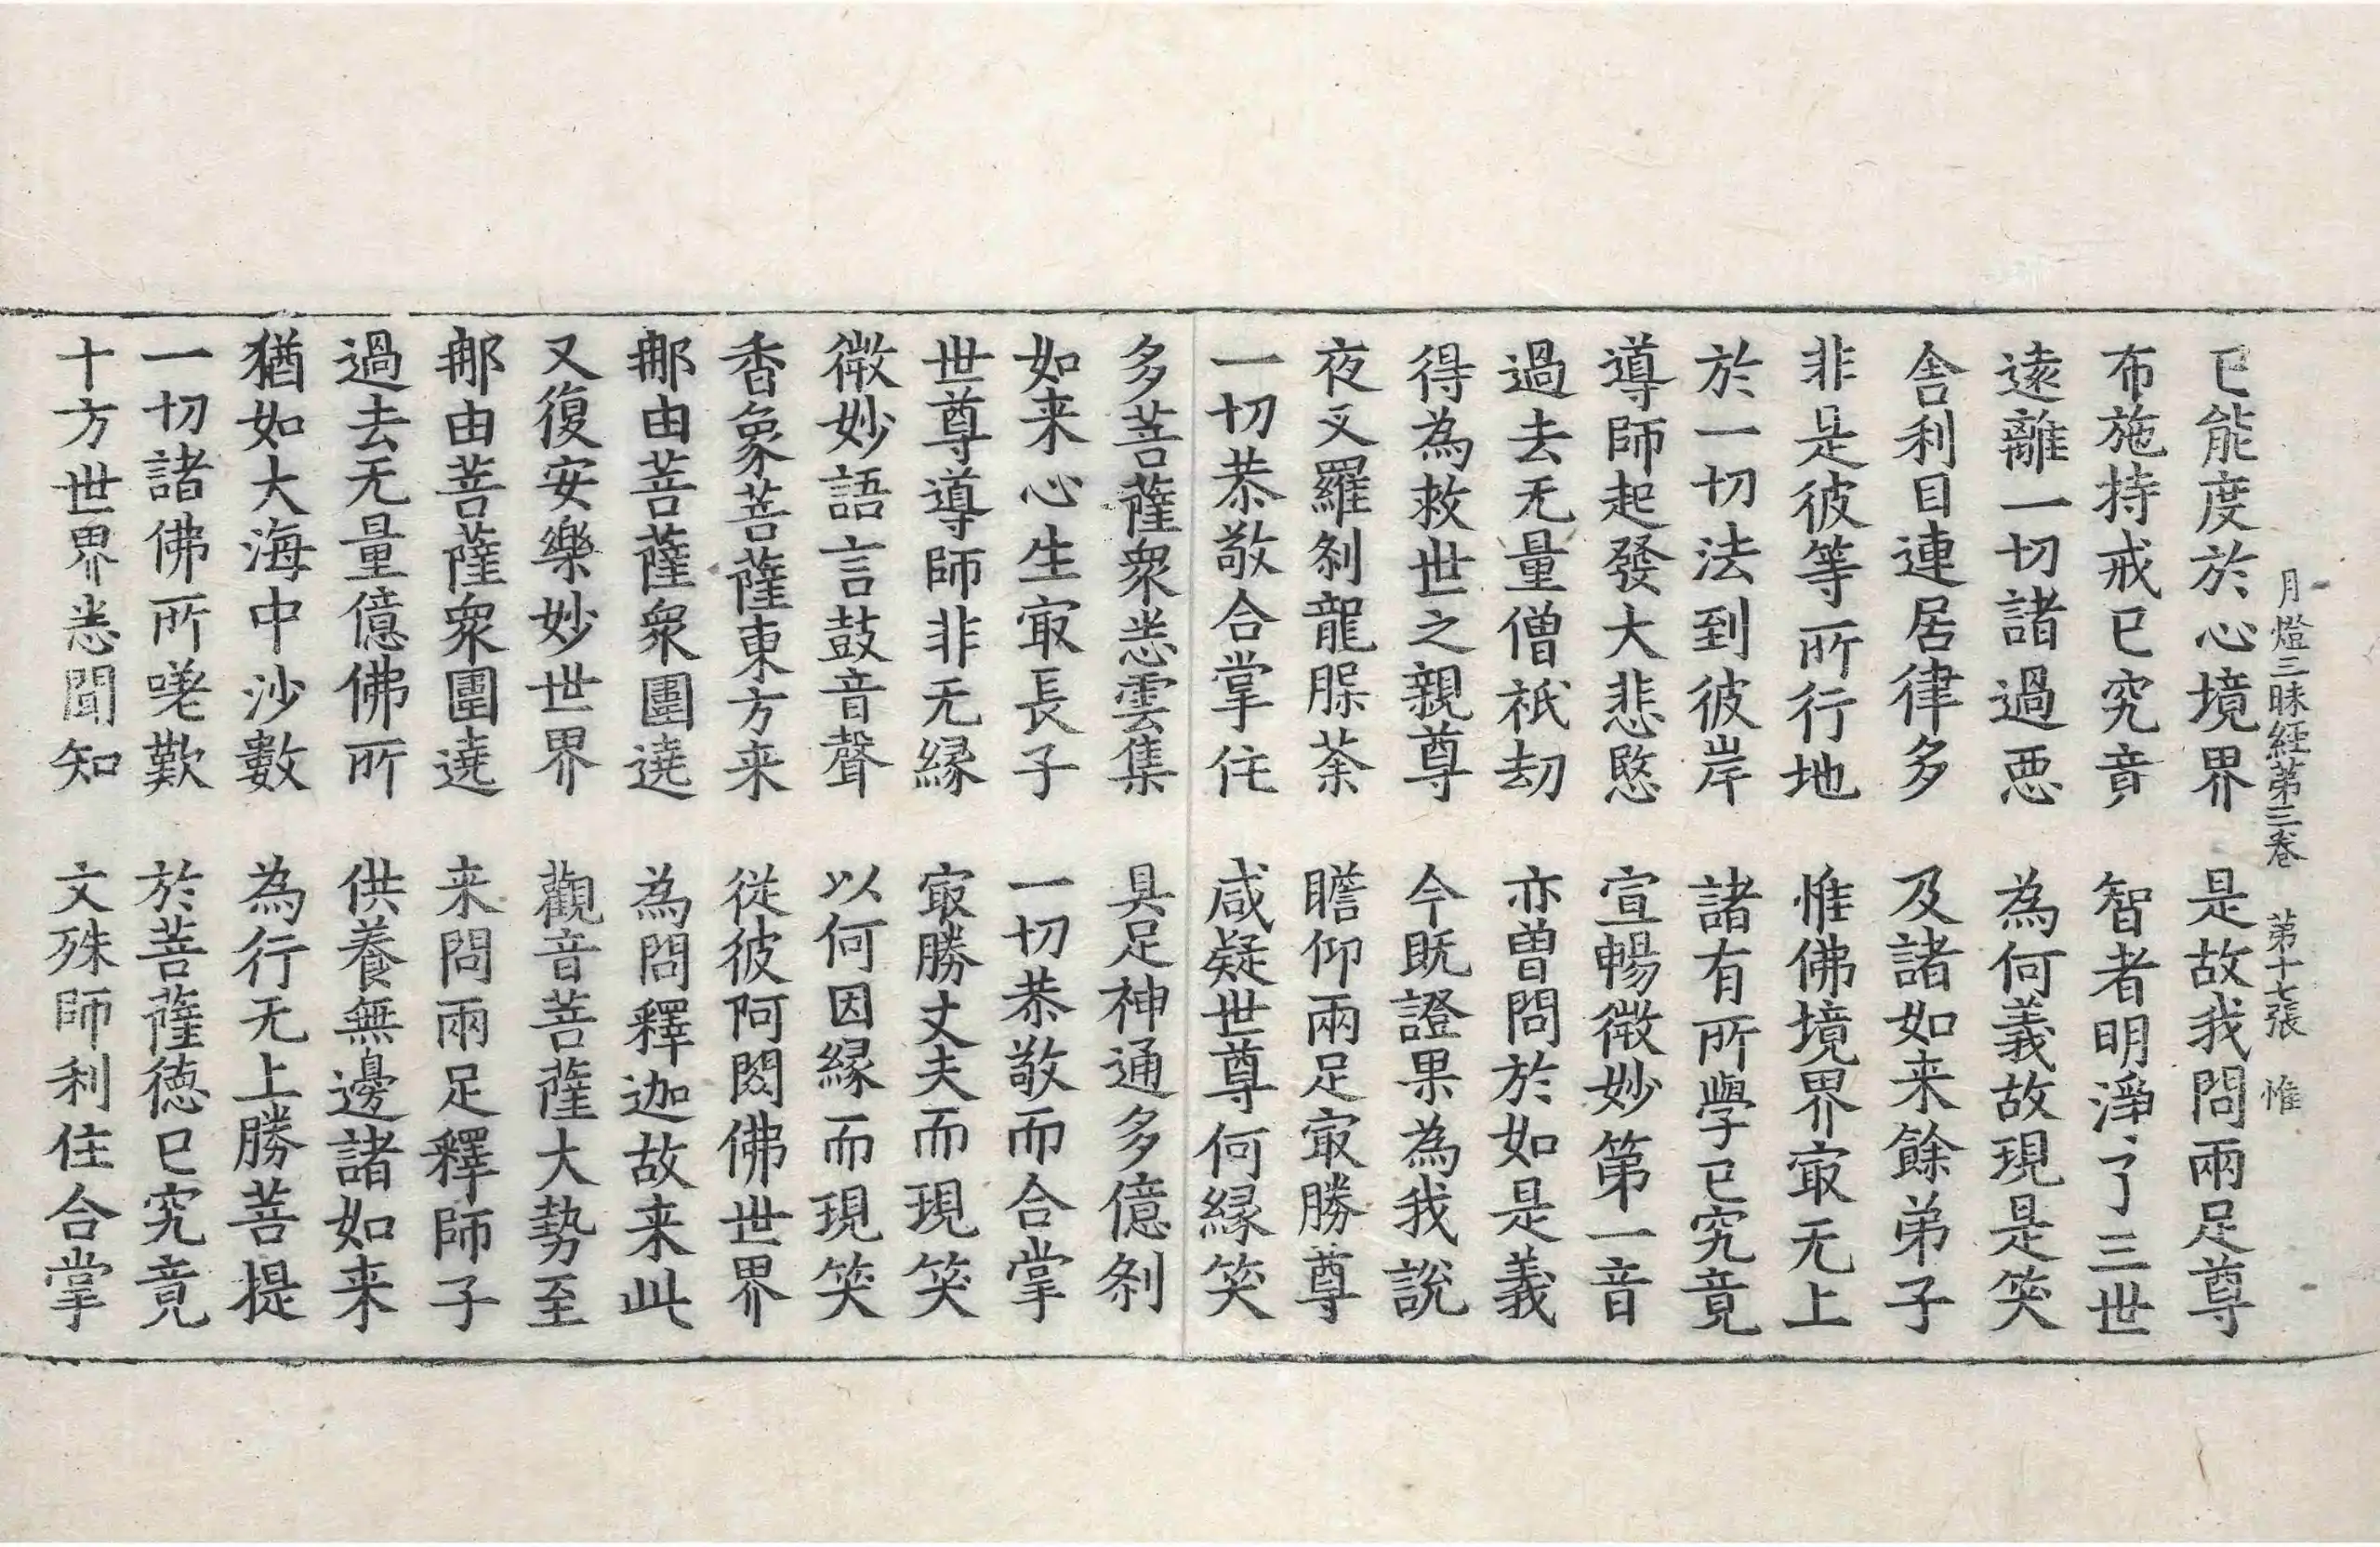 月燈三昧経第三卷　第十七張　惟
已能度於心境界　是故我問兩足尊
布施持戒已究竟　智者明淨了三世
遠離一切諸過惡　為何義故現是笑
舎利目連居律多　及諸如来餘弟子
非是彼等所行地　惟佛境界㝡无上
於一切法到彼岸　諸有所學已究竟
導師起發大悲愍　宣暢微妙第一音
過去无量僧祇劫　亦曽問於如是義
得為救世之親尊　今既證果為我說
夜叉羅刹龍脲荼　瞻仰兩足㝡勝尊
一切恭敬合掌住　咸疑世尊何縁笑
多菩薩衆悉雲集　具足神通多億刹
如来心生㝡長子　一切恭敬而合掌
世尊導師非无縁　㝡勝丈夫而現笑
微妙語言鼓音聲　以何因縁而現笑
香象菩薩東方来　従彼阿閦佛世界
那由菩薩衆圍遶　為問釋迦故来此
又復安樂妙世界　觀音菩薩大勢至
那由菩薩衆圍遶　来問兩足釋師子
過去无量億佛所　供養無邊諸如来
猶如大海中沙數　為行无上勝菩提
一切諸佛所嗟歎　於菩薩德已究竟
十方世界悉聞知　文殊師利住合掌